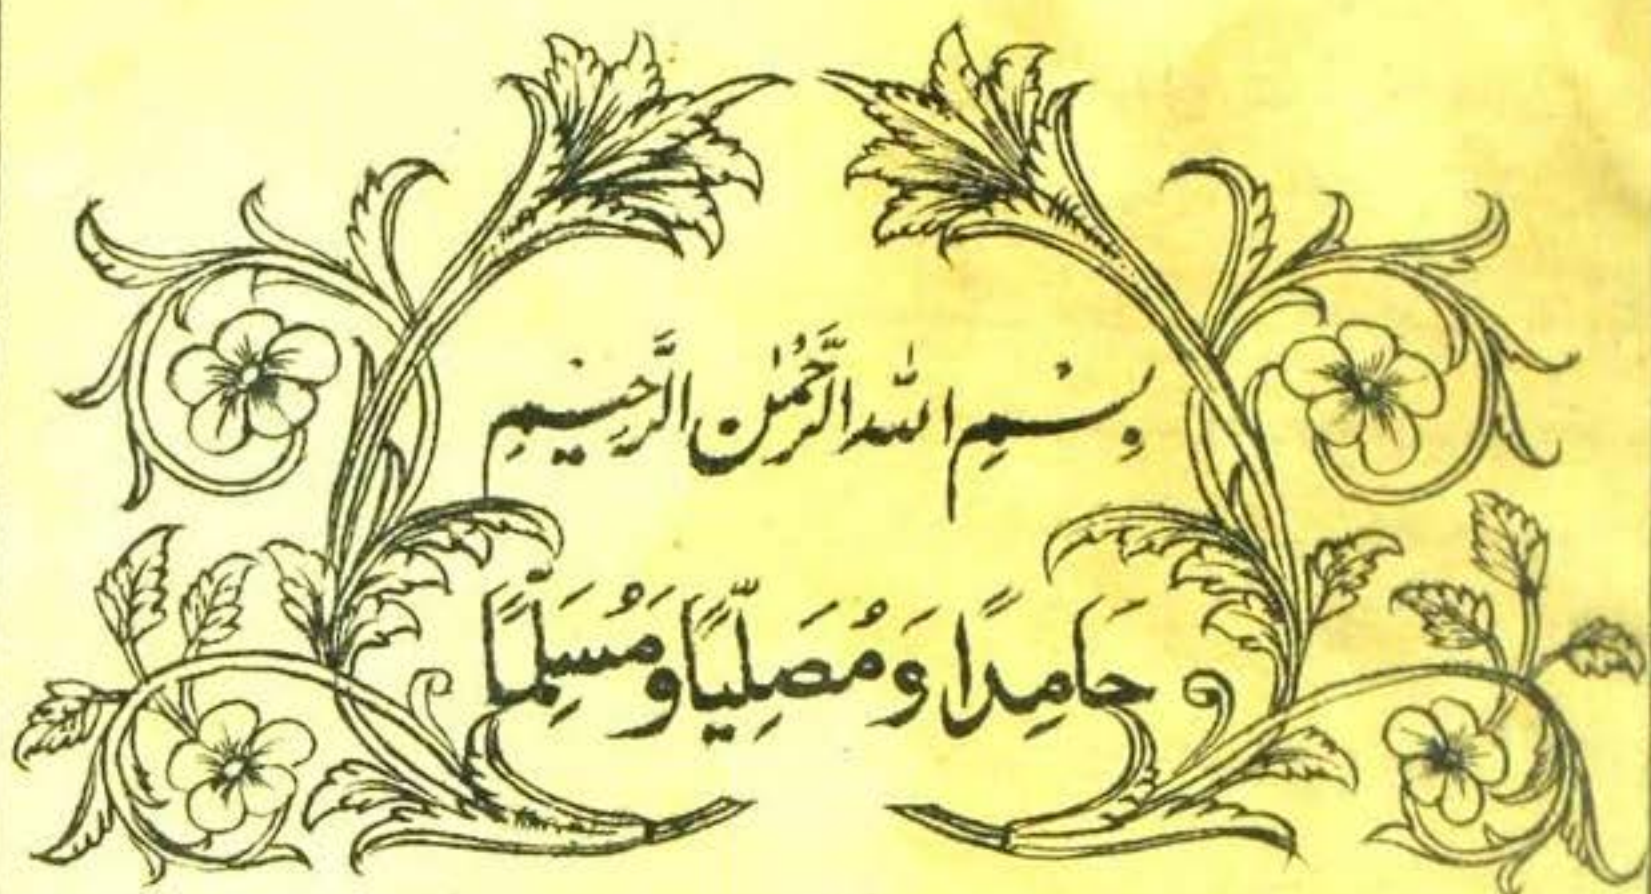 بِسْمِ اللہِ الرَّحْمٰنِ الرَّحِیْمِ
حَامِدًا وَ مُصَلِّیًا وَ مُسَلِّمًا